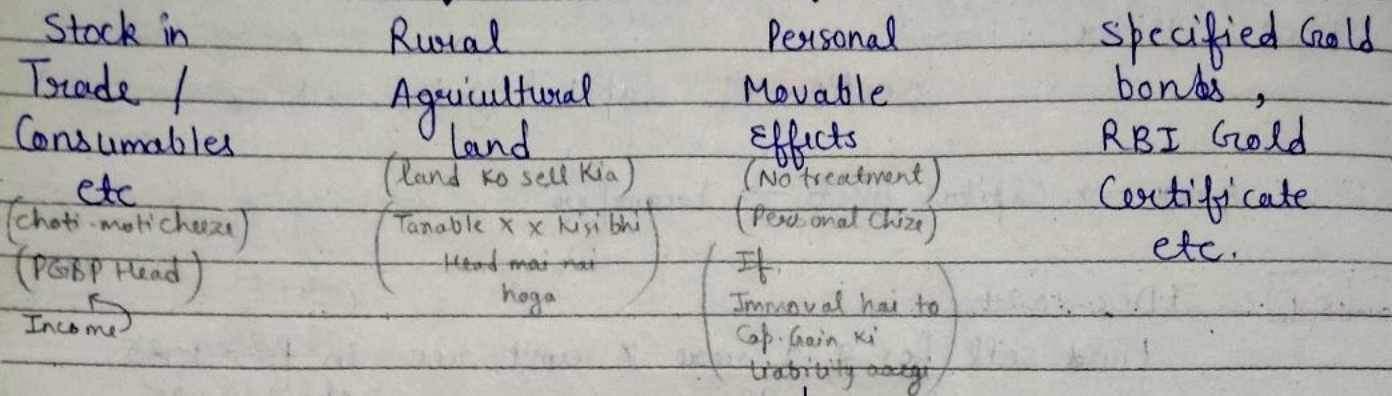 Stock in
Trade /
Consumables
etc
(choti-moti cheeze)
(PGBP Head)
Income
Rural
Agricultural
land
(land ko sell Kia)
(Taxable x x kisi bhi
Head mai nai
hoga)
Personal
Movable
Effects
(No treatment)
(Personal Chize)
(If
Immoval hai to
Cap. Gain ki
liability aaegi)
Specified Gold
bonds,
RBI Gold
Certificate
etc.